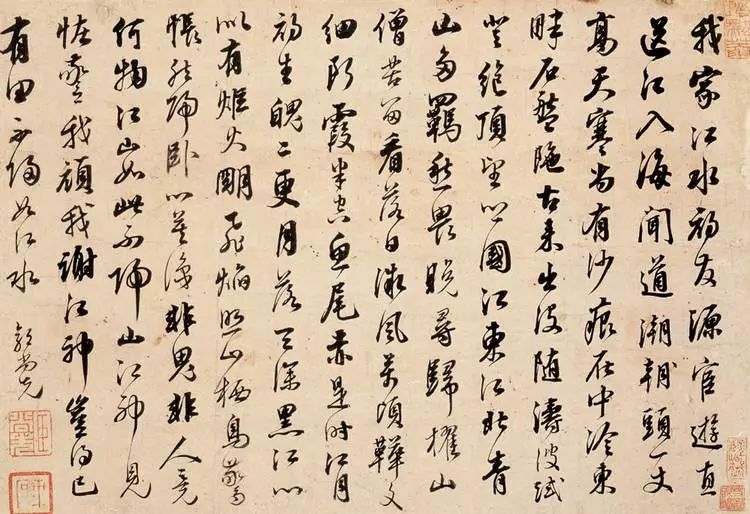 我家江水初發源宦遊直
送江入海聞道潮頭一丈
高天寒尚有沙痕在中泠東
畔石盤陀古來出沒隨濤波試
登絕頂望鄉國江東江北青
山多羈愁畏晚尋歸櫂山
僧苦留看落日微風萬頃鞾文
細斷霞半空魚尾赤是時江月
初生魄二更月落天深黑江心
似有炬火明飛焰照山棲鳥驚
悵然歸臥心莫識非鬼非人竟
何物江山如此不歸山江神見
怪驚我頑我謝江神豈得已
有田不歸如江水
郭尚先